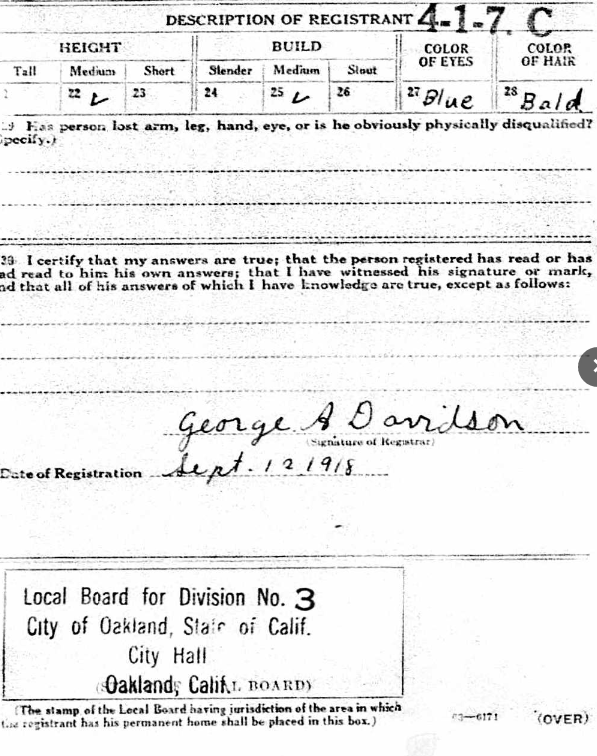 DESCRIPTION OF REGISTRANT 4-1-7. C
HEIGHT BUILD COLOR OF EYES COLOR OF HAIR
Tall Medium Short Slender Medium Stout
22 ✓ 23 24 25 ✓ 26 27 Blue 28 Bald
Has person lost arm, leg, hand, eye, or is he obviously physically disqualified?
pecify.)
30 I certify that my answers are true; that the person registered has read or has
ad read to him his own answers; that I have witnessed his signature or mark,
nd that all of his answers of which I have knowledge are true, except as follows:
George A Davidson
(Signature of Registrar)
Date of Registration Sept. 12 1918
Local Board for Division No. 3
City of Oakland, State of Calif.
City Hall
Oakland, Calif. L BOARD)
(The stamp of the Local Board having jurisdiction of the area in which
the registrant has his permanent home shall be placed in this box.)
03—6171 (OVER)